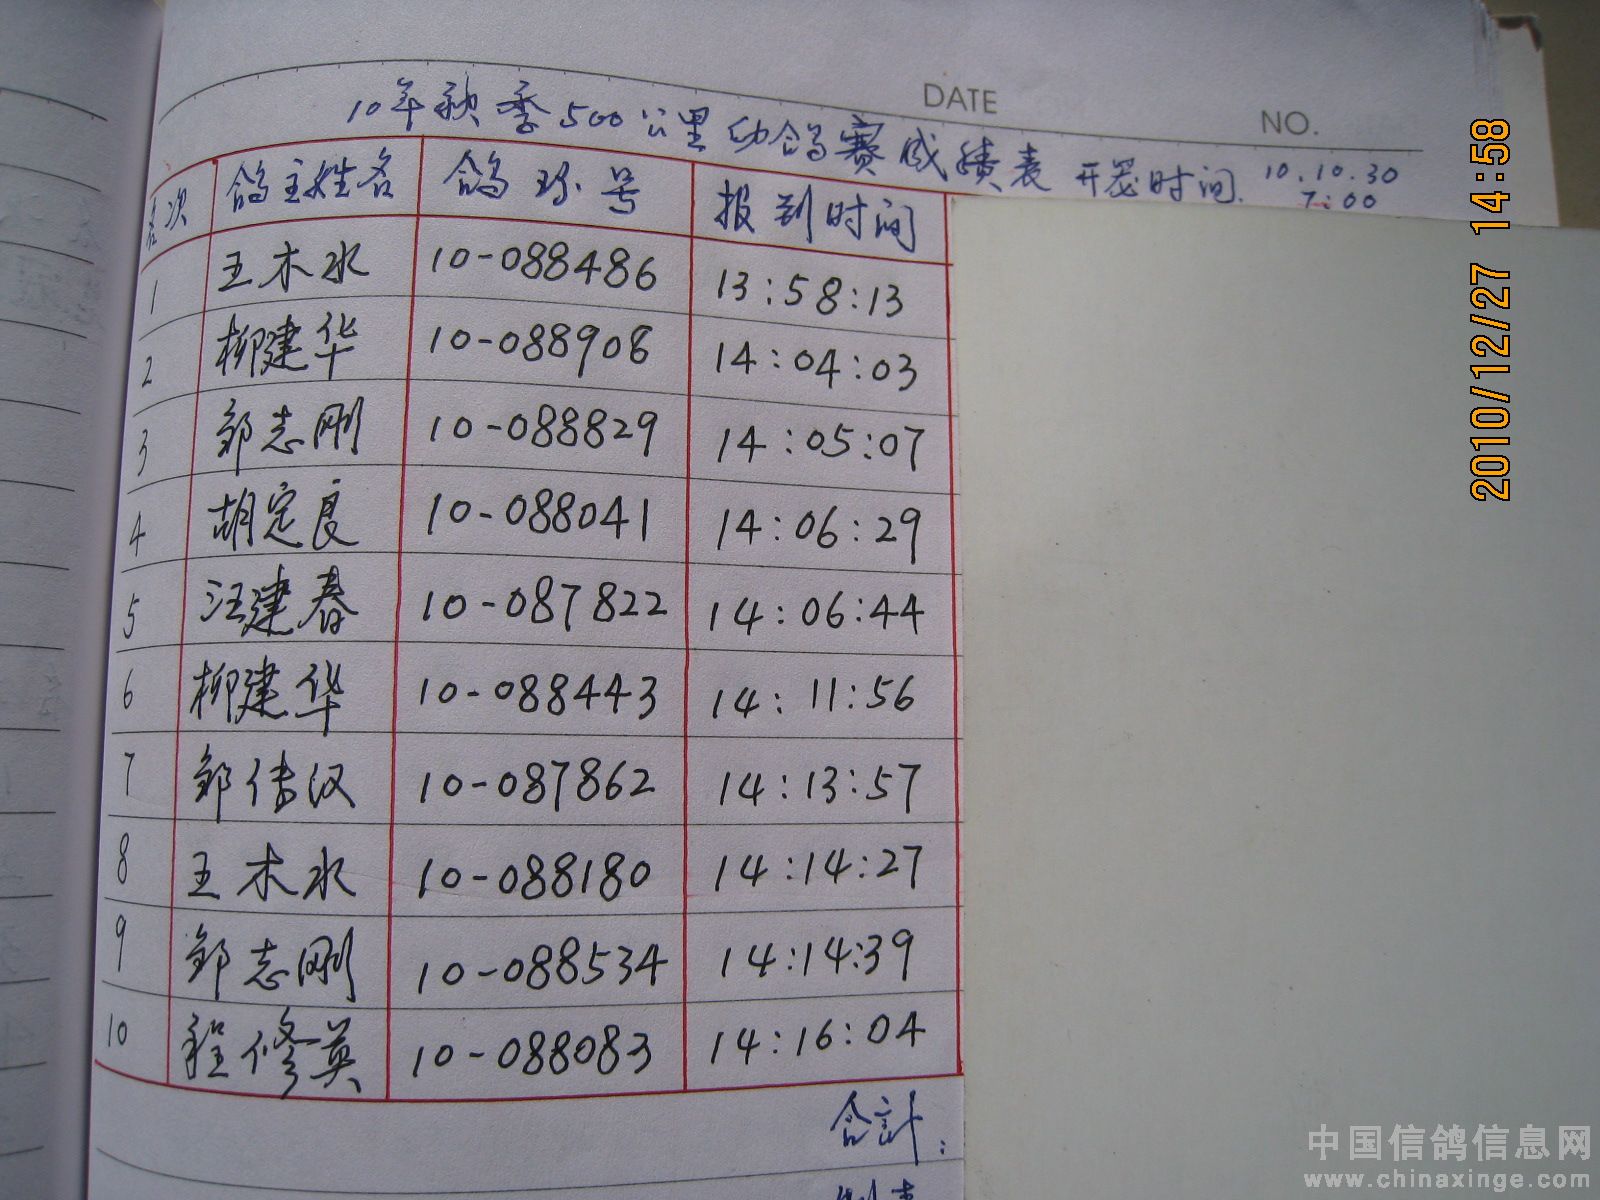 DATE
NO.
10年秋季500公里幼鸽赛成绩表 开笼时间 10.10.30
7:00
名次 鸽主姓名 鸽环号 报到时间
1 王木水 10-088486 13:58:13
2 柳建华 10-088908 14:04:03
3 邹志刚 10-088829 14:05:07
4 胡定良 10-088041 14:06:29
5 汪建春 10-087822 14:06:44
6 柳建华 10-088443 14:11:56
7 邹传汉 10-087862 14:13:57
8 王木水 10-088180 14:14:27
9 邹志刚 10-088534 14:14:39
10 程修英 10-088083 14:16:04
合計:
2010/12/27 14:58
中国信鸽信息网
www.chinaxinge.com